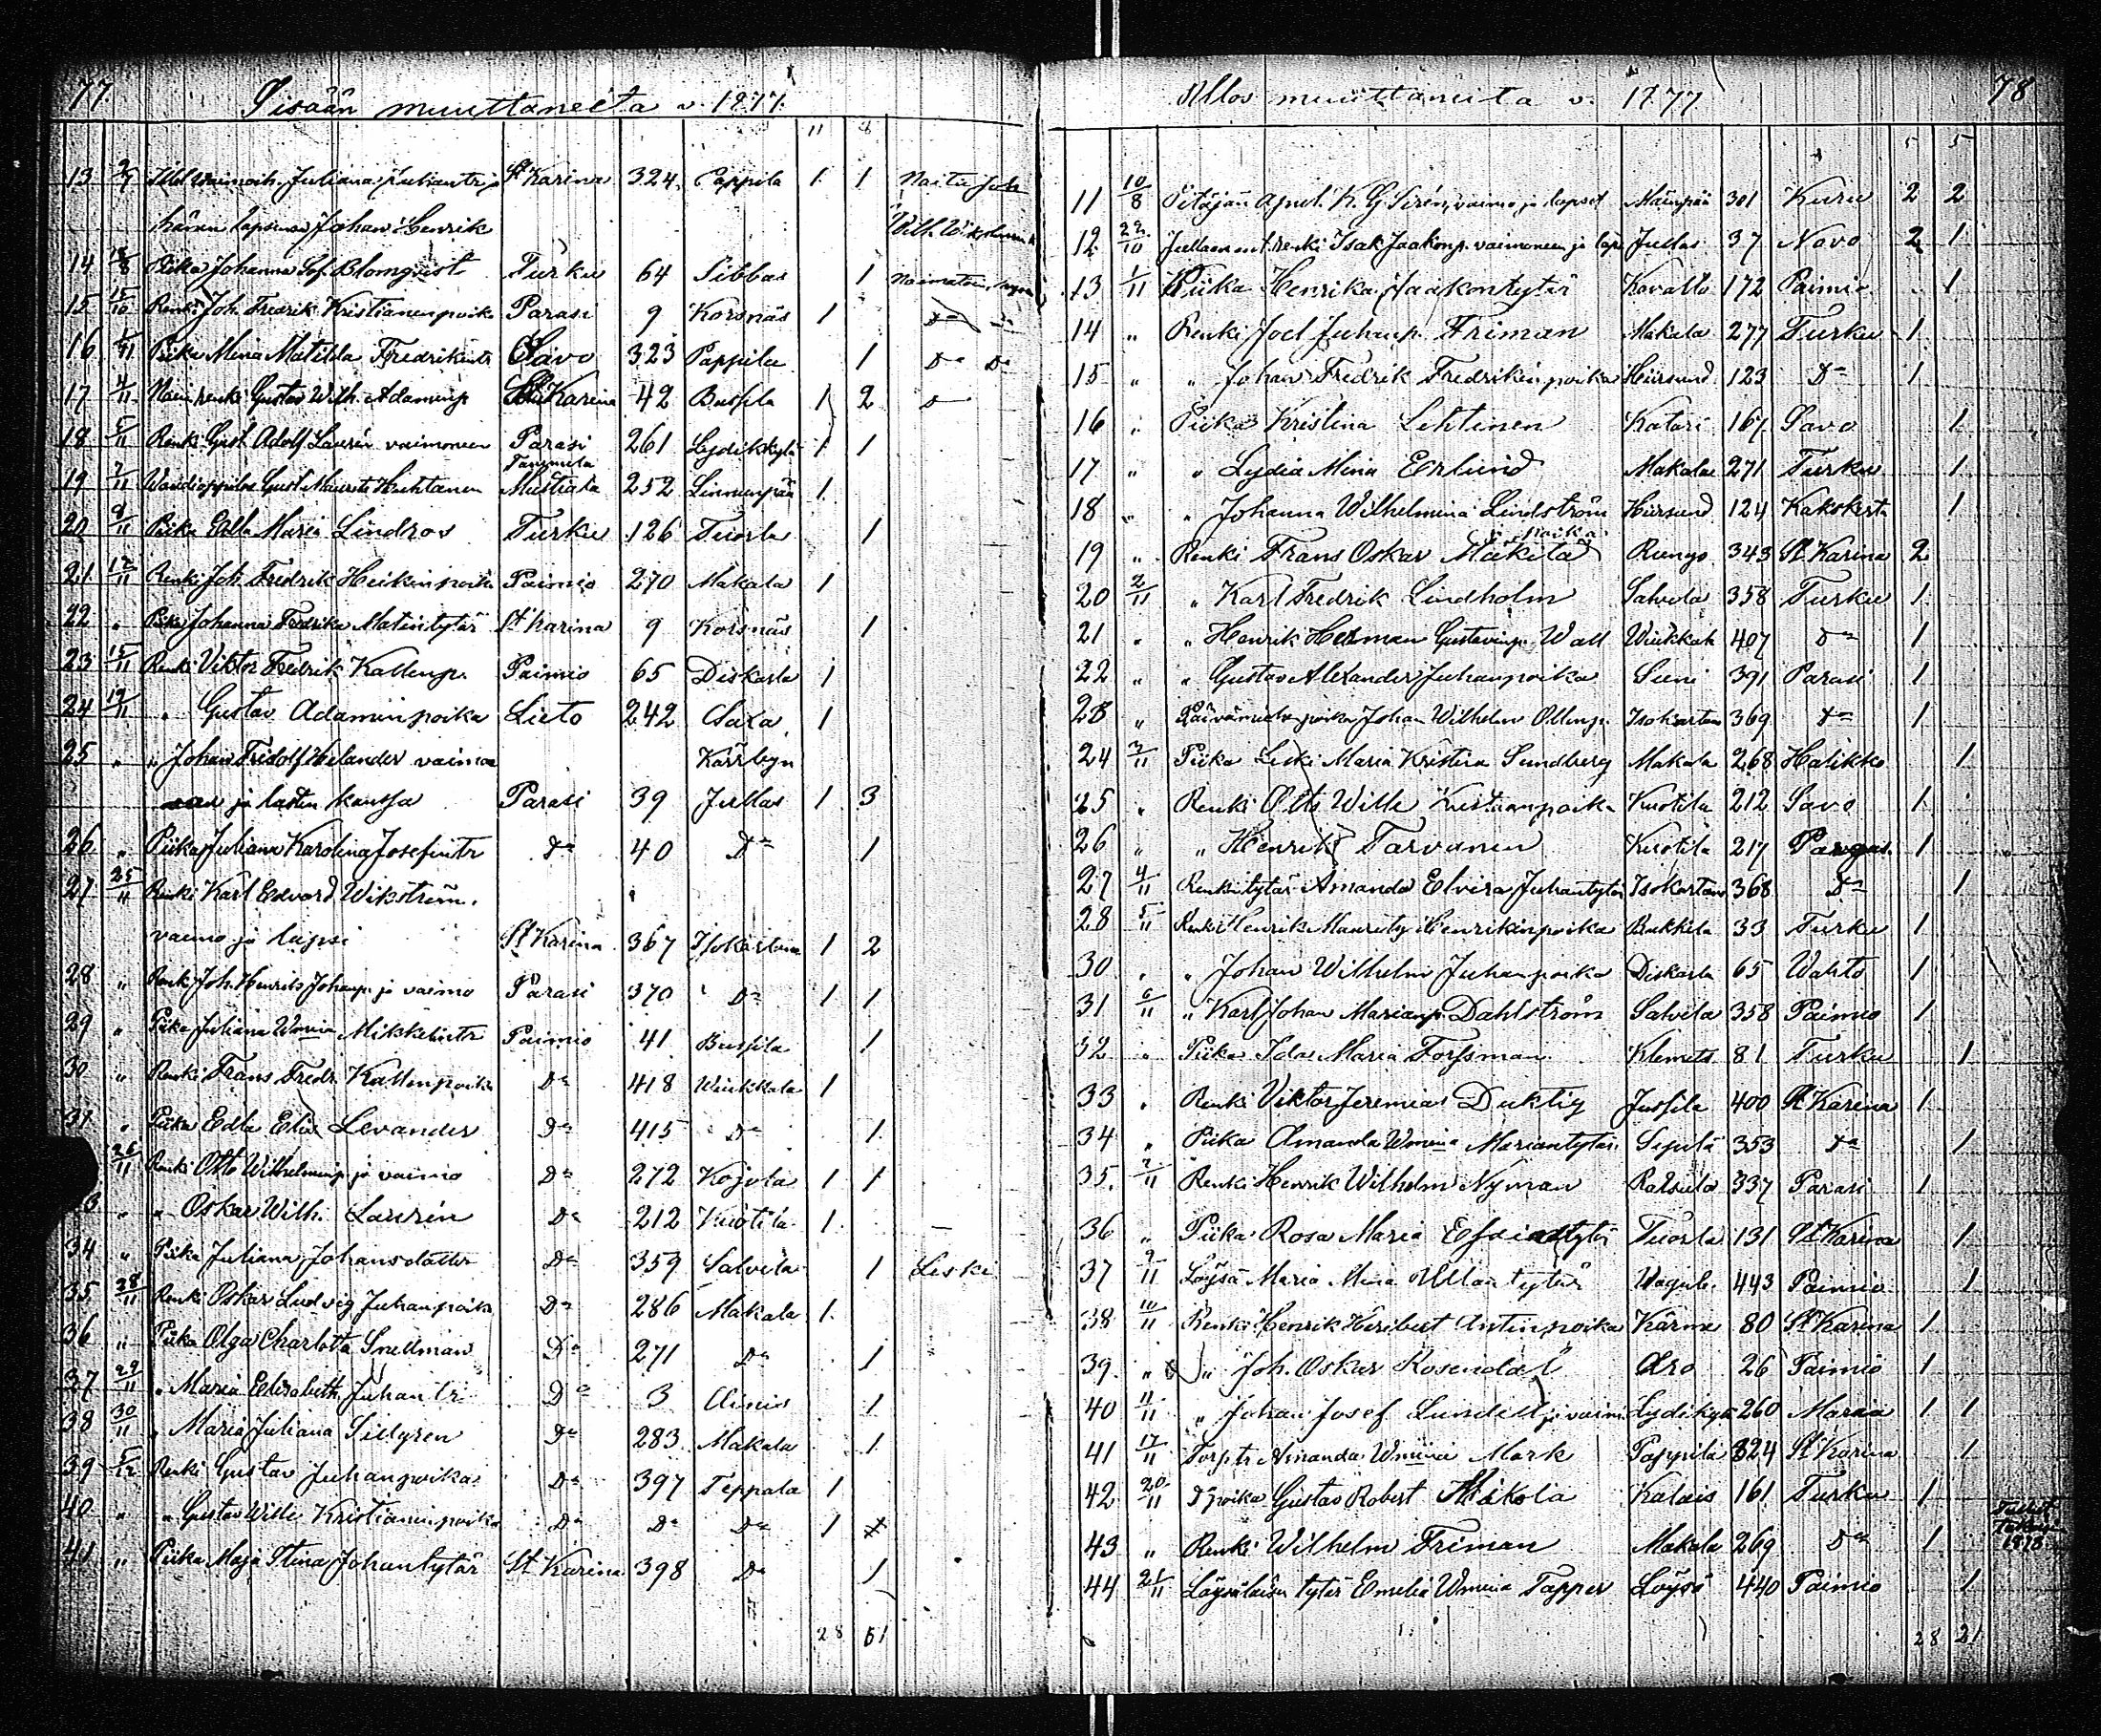 77
Sisään muuttaneita v. 1877.
11 8
13 2/7 Juliana Juhantr ja St Karina 324 Pappila 1 1 Naitu Joh
hänen lapsensa Johan Henrik Wilh.
14 18/8 Piika Johanna Sof. Blomqvist Turku 64 Sibbas 1
15 15/10 Renki Joh. Fredrik Kristianinpoika Parasi 9 Korsnäs 1
16 1/11 Piika Mina Matilda Fredrikintr Savo 323 Pappila 1 Do Do
17 4/11 Gustav Wilh. Adaminp St Karina 42 Bussila 1 2
18 5/11 Renki Gust. Adolf Laurén vaimoneen Parasi 261 Lydikkylä 1 1
19 7/11 Gust Maurits Huhtanen Mustiala 252 Linnunpää 1
20 8/11 Piika Edla Maria Lindros Turku 126 Tuorla 1
21 12/11 Renki Joh. Fredrik Heikinpoika Paimio 270 Makala 1
22 " Piika Johanna Fredrika Matintytär St Karina 9 Korsnäs 1
23 15/11 Renki Viktor Fredrik Kallenp. Paimio 65 Diskarla 1
24 19/11 " Gustav Adaminpoika Lieto 242 1
25 " " Johan Fridolf Helander vaimon Kärrbyn
ja lasten kanssa Parasi 39 Jullas 1 3
26 " Piika Juliana Karolina Josefintr Do 40 Do 1
27 25/11 Renki Karl Edvard Wikström.
vaimo ja lapsi St Karina 367 Isokartano 1 2
28 " Renk Joh. Henrik Johanp. ja vaimo Parasi 370 Do 1 1
29 " Piika Juliana Wmina Mikkelintr Paimio 41 Bussila 1
30 " Renki Frans Fredr. Kallenpoika Do 418 Wiukkala 1
31 " Piika Edla Elis Levander Do 415 Do 1
26/11 Renki Otto Wilhelminp. ja vaimo Do 272 Kojola 1 1
3 " " Oskar Wilh. Laurén Do 212 Kuotila 1
34 " Piika Juliana Johansdotter Do 359 Salvela 1 Leski
35 28/11 Renki Oskar Ludvig Juhanpoik Do 286 Makala 1
36 " Piika Olga Charlotta Snellman Do 271 Do 1
37 29/11 " Maria Elisabeth Juhantr Do 3 Ainis 1
38 30/11 " Maria Juliana Sillgren Do 283 Makala 1
39 5/12 Renki Gustav Juhanpoika Do 397 Teppala 1
40 " " Gustav Wille Kristianinpoika Do Do Do 1
41 " Piika Maja Stina Johantytär St Karina 398 Do 1
28
78
Ulos muuttaneita v. 1877
5 5
11 10/8 Pitäjän K. G. Sirén, vaimo ja lapset Mäenpää 301 Kuru 2 2
12 22/10 renki Isak Jaakonp. vaimoneen ja Jullas 37 2 1
13 1/11 Piika Henrika Jaakontytär 172 Paimio 1
14 " Renki Joel Juhanp. Friman Makala 277 Turku 1
15 " " Johan Fredrik Fredrikinpoika Hiirsund 123 Do 1
16 " Piika Kristina Lehtinen Katari 167 Savo 1
17 " " Lydia Mina Erlund Makala 271 Turku 1
18 " " Johanna Wilhelmina Lindström Hiirsund 124 Kakskerta 1
ja poika
19 " Renki Frans Oskar Mäkilä Rungo 343 St Karina 2
20 2/11 " Karl Fredrik Lindholm Salvela 358 Turku 1
21 " " Henrik Herman Gustavinp. Wall Wiukkala 407 Do 1
22 " " Gustav Alexander Juhanpoika Suni 391 Parasi 1
23 " Johan Wilhelm Ollinp. Isokartano 369 Do 1
24 3/11 Piika Leski Maria Kristina Sundberg Makala 268 Halikko 1
25 " Renki Otto Wille Kustianpoika Kuotila 212 Savo 1
26 " " Henrik Tarvanen Kuotila 217 1
27 4/11 Renkintytär Amanda Elvira Juhantytär Isokartano 368 Do 1
28 5/11 Renki Henrik Mauritz Henrikinpoika Bukkila 33 Turku 1
30 " " Johan Wilhelm Juhanpoika Diskarla 65 Wahto 1
31 6/11 " Karl Johan Marianp. Dahlström Salvela 358 Paimio 1
32 " Piika Ida Maria Forssman Klemets 81 Turku 1
33 " Renki Viktor Jeremias Duktig Jussila 400 St Karina 1
34 " Piika Amanda Wmina Mariantytär 353 Do 1
35 7/11 Renki Henrik Wilhelm Nyman Ratsula 337 Parasi 1
36 " Piika Rosa Maria Esaiantytär Tuorla 131 St Karina 1
37 9/11 Löysä Maria Mina Ullantytär 443 Paimio 1
38 10/11 Renki Henrik Heribert Antinpoika Kärme 80 St Karina 1
39 " " Joh. Oskar Rosendal Aro 26 Paimio 1
40 11/11 " Johan Josef Lundell ja vaimo Lydikylä 260 Maria 1 1
41 17/11 Torp.tr Amanda Wmina Mark Pappila 324 St Karina 1
42 20/11 Gustav Robert Mikola Kalais 161 Turku 1
43 " Renki Wilhelm Friman Makala 269 Do 1 1878
44 21/11 Löysäläisen tytär Emelia Wmina Tapper Löysä 440 Paimio 1
28 21